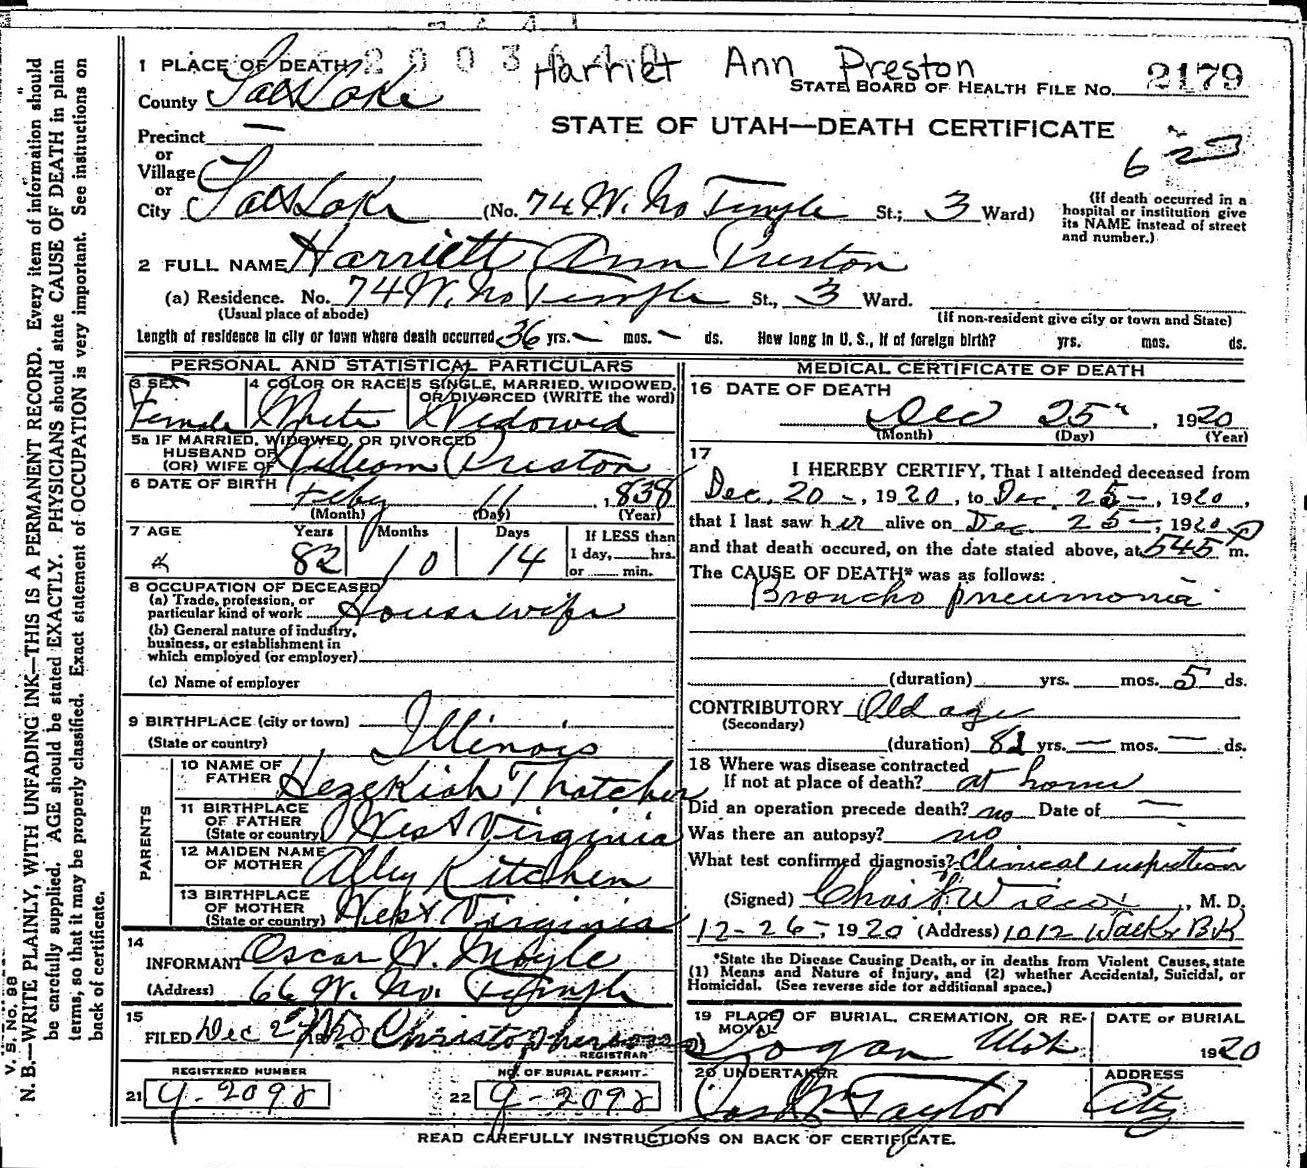 2003
Harriet Ann Preston
1 PLACE OF DEATH
STATE BOARD OF HEALTH FILE No. 2179
County Salt Lake
STATE OF UTAH—DEATH CERTIFICATE
Precinct —
or
Village
or
City Salt Lake (No. 74 W. No Temple St.; 3 Ward)
(If death occurred in a hospital or institution give its NAME instead of street and number.)
2 FULL NAME Harriett Ann Preston
(a) Residence. No. 74 W. No Temple St., 3 Ward.
(Usual place of abode)
(If non-resident give city or town and State)
Length of residence in city or town where death occurred 36 yrs. — mos. — ds. How long in U. S., if of foreign birth? yrs. mos. ds.
PERSONAL AND STATISTICAL PARTICULARS
3 SEX Female
4 COLOR OR RACE White
5 SINGLE, MARRIED, WIDOWED, OR DIVORCED (WRITE the word) Widowed
5a IF MARRIED, WIDOWED, OR DIVORCED
HUSBAND OF
(OR) WIFE OF William Preston
6 DATE OF BIRTH Feby 11, 1838
(Month) (Day) (Year)
7 AGE Years 82 Months 10 Days 14
If LESS than
1 day, hrs.
or min.
8 OCCUPATION OF DECEASED
(a) Trade, profession, or
particular kind of work Housewife
(b) General nature of industry,
business, or establishment in
which employed (or employer)
(c) Name of employer
9 BIRTHPLACE (city or town)
(State or country) Illinois
PARENTS
10 NAME OF FATHER Hezekiah Thatcher
11 BIRTHPLACE OF FATHER
(State or country) West Virginia
12 MAIDEN NAME OF MOTHER Alley Kitchen
13 BIRTHPLACE OF MOTHER
(State or country) West Virginia
14
INFORMANT Oscar W. Moyle
(Address) 66 W. No. Temple
15
FILED Dec 27
REGISTRAR
REGISTERED NUMBER
21 g-2092
NO. OF BURIAL PERMIT
22 g-2092
MEDICAL CERTIFICATE OF DEATH
16 DATE OF DEATH
Dec 25, 1920
(Month) (Day) (Year)
17
I HEREBY CERTIFY, That I attended deceased from
Dec. 20 -, 1920, to Dec. 25 -, 1920,
that I last saw her alive on Dec 25 -, 1920
and that death occured, on the date stated above, at 545 P m.
The CAUSE OF DEATH* was as follows:
Broncho pneumonia
(duration) yrs. mos. 5 ds.
CONTRIBUTORY Old age
(Secondary)
(duration) 82 yrs. — mos. — ds.
18 Where was disease contracted
If not at place of death? at home
Did an operation precede death? no Date of —
Was there an autopsy? no
What test confirmed diagnosis? Clinical inspection
(Signed) Chas F Wilcox, M. D.
12-26-, 1920 (Address) 1012 Walker Bk
*State the Disease Causing Death, or in deaths from Violent Causes, state
(1) Means and Nature of Injury, and (2) whether Accidental, Suicidal, or
Homicidal. (See reverse side for additional space.)
19 PLACE OF BURIAL, CREMATION, OR REMOVAL Logan Utah
DATE OF BURIAL
1920
20 UNDERTAKER Jos Wm Taylor
ADDRESS City
READ CAREFULLY INSTRUCTIONS ON BACK OF CERTIFICATE.
V. S. No. 98
N. B.—WRITE PLAINLY, WITH UNFADING INK—THIS IS A PERMANENT RECORD. Every item of information should
be carefully supplied. AGE should be stated EXACTLY. PHYSICIANS should state CAUSE OF DEATH in plain
terms, so that it may be properly classified. Exact statement of OCCUPATION is very important. See instructions on
back of certificate.